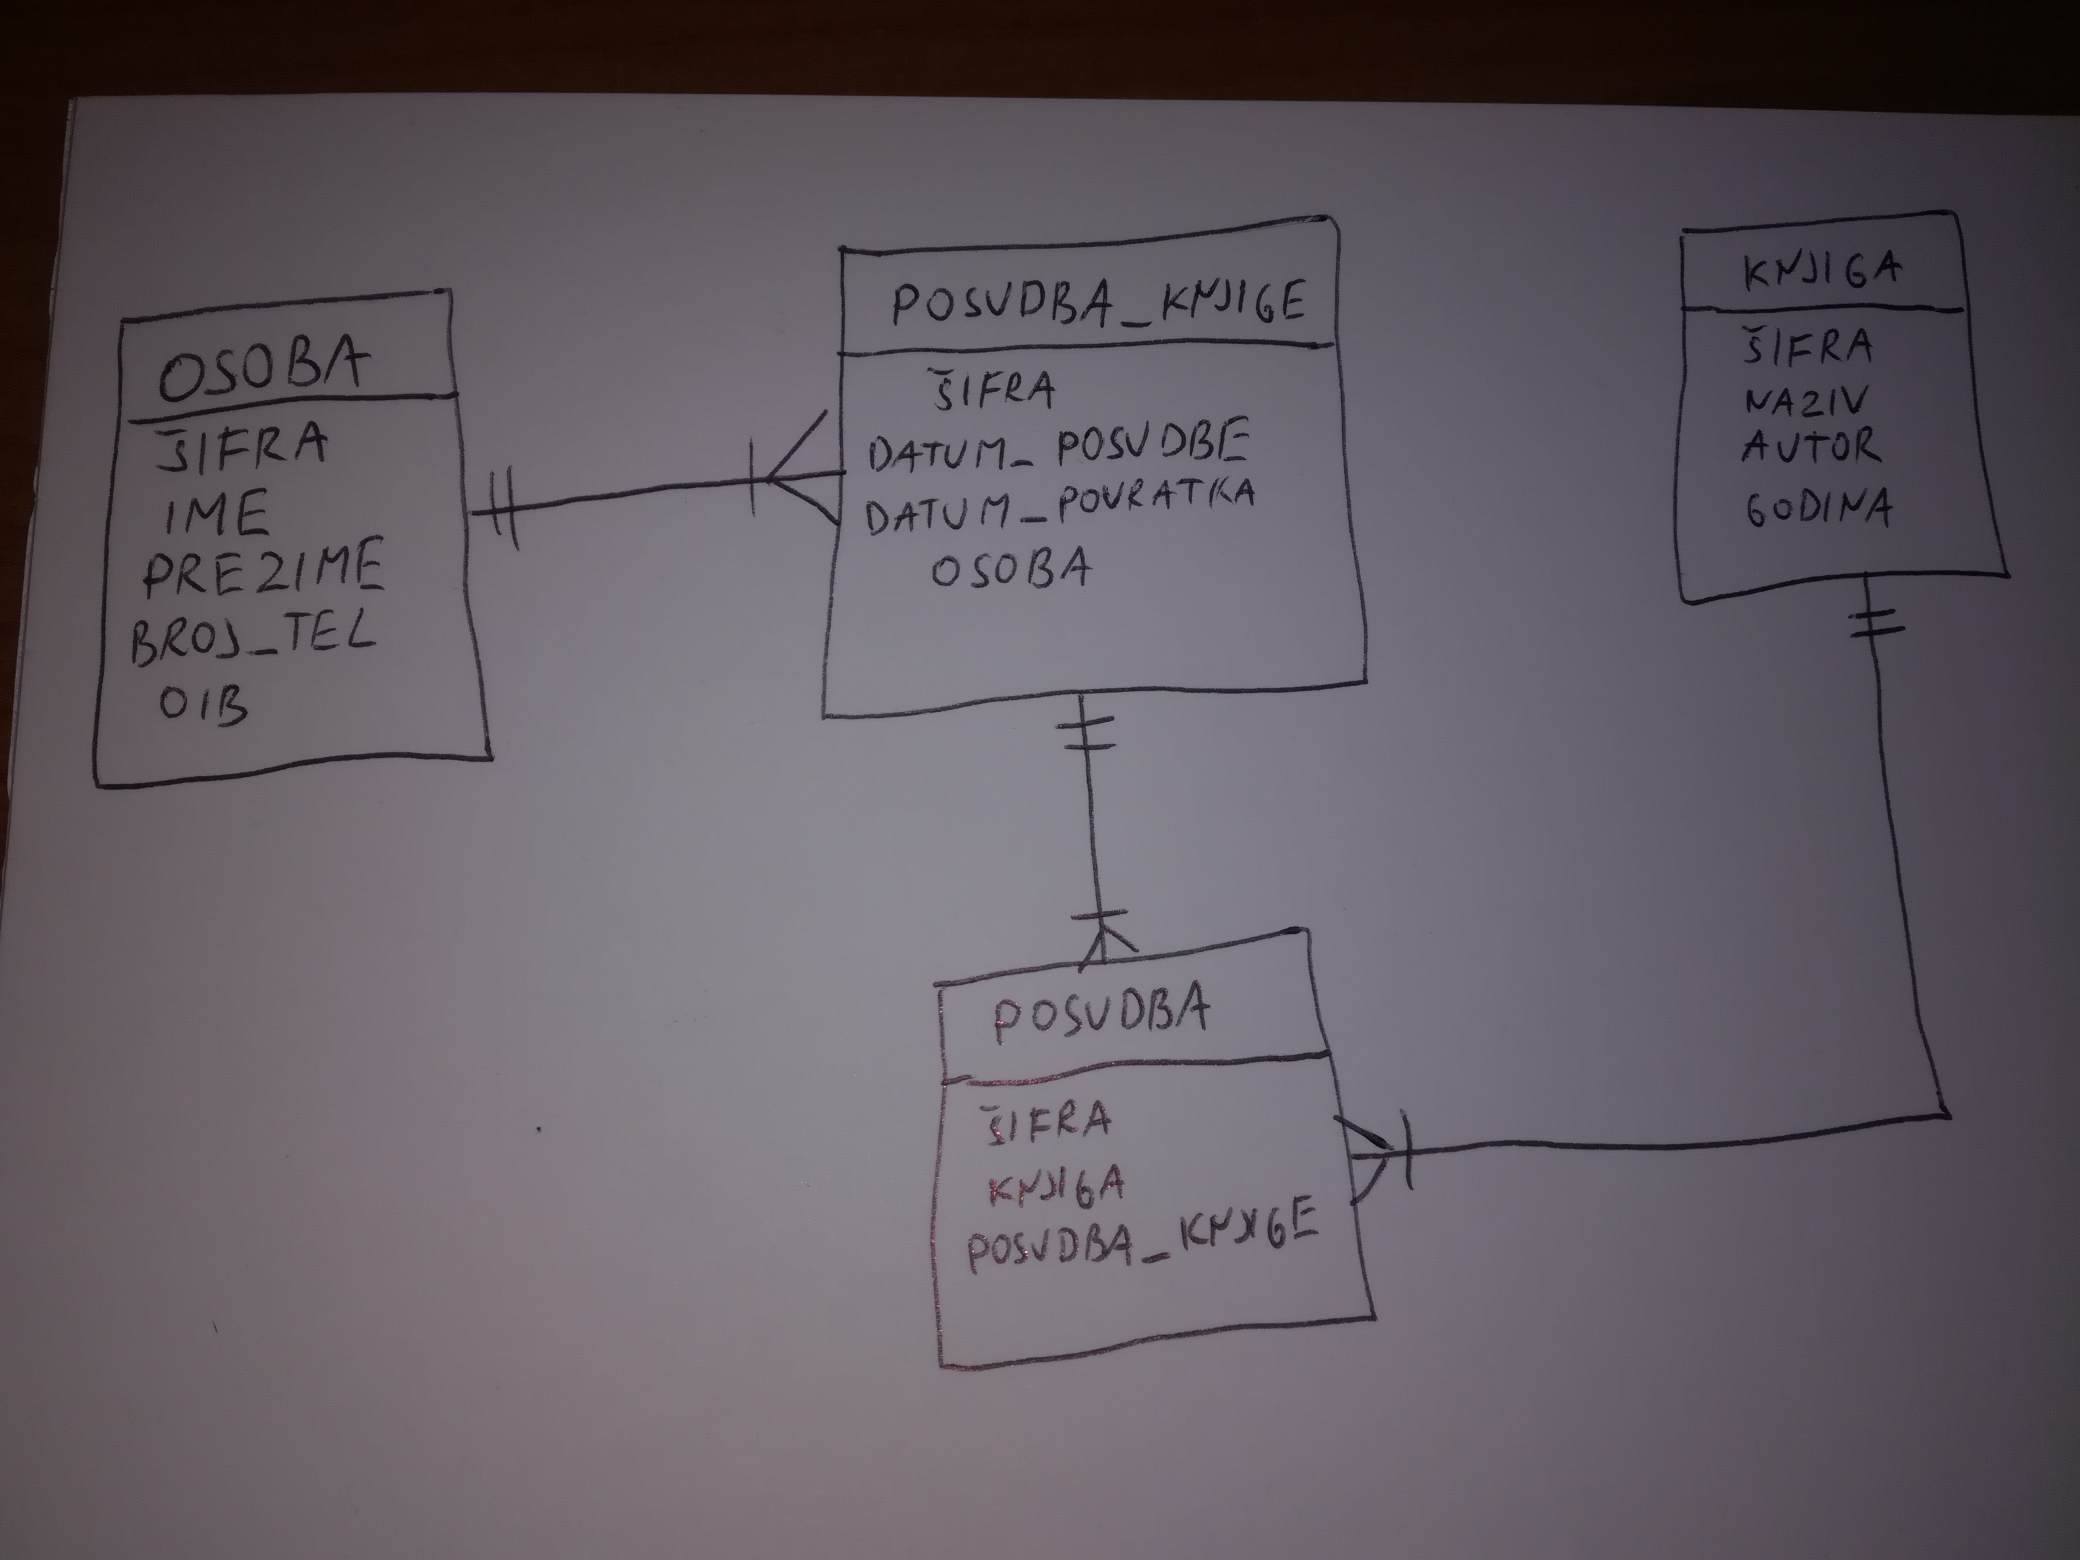 OSOBA
ŠIFRA
IME
PREZIME
BROJ_TEL
OIB
POSUDBA_KNJIGE
ŠIFRA
DATUM_POSUDBE
DATUM_POVRATKA
OSOBA
KNJIGA
ŠIFRA
NAZIV
AUTOR
GODINA
POSUDBA
ŠIFRA
KNJIGA
POSUDBA_KNJIGE